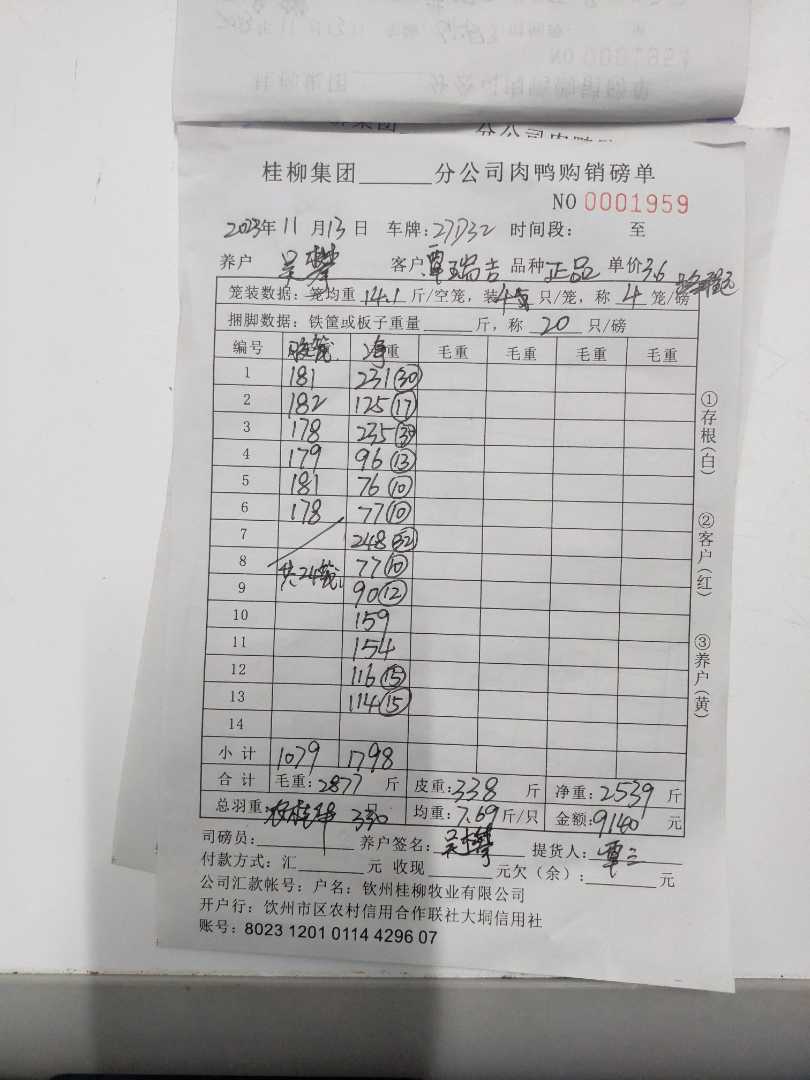 桂柳集团______分公司肉鸭购销磅单
NO 0001959
2023年11月13日 车牌:27D32 时间段: 至
养户 吴攀 客户覃瑞吉 品种正品 单价3.6
笼装数据:笼均重14.1斤/空笼,装 只/笼,称4笼/磅
捆脚数据:铁筐或板子重量______斤,称20只/磅
编号 净重 毛重 毛重 毛重 毛重
1 181 231(30)
2 182 125(17)
3 178 235
4 179 96(13)
5 181 76(10)
6 178 77(10)
7 248(32)
8 77(10)
9 共24筐 90(12)
10 159
11 154
12 116(15)
13 114(15)
14
小计 1079 1798
合计 毛重:2877斤 皮重:338斤 净重:2539斤
总羽重: 330只 均重:7.69斤/只 金额:9140元
司磅员:______ 养户签名:吴攀 提货人:覃三
付款方式:汇______元 收现______元欠(余):______元
公司汇款帐号:户名:钦州桂柳牧业有限公司
开户行:钦州市区农村信用合作联社大垌信用社
账号:8023 1201 0114 4296 07
①存根(白)
②客户(红)
③养户(黄)